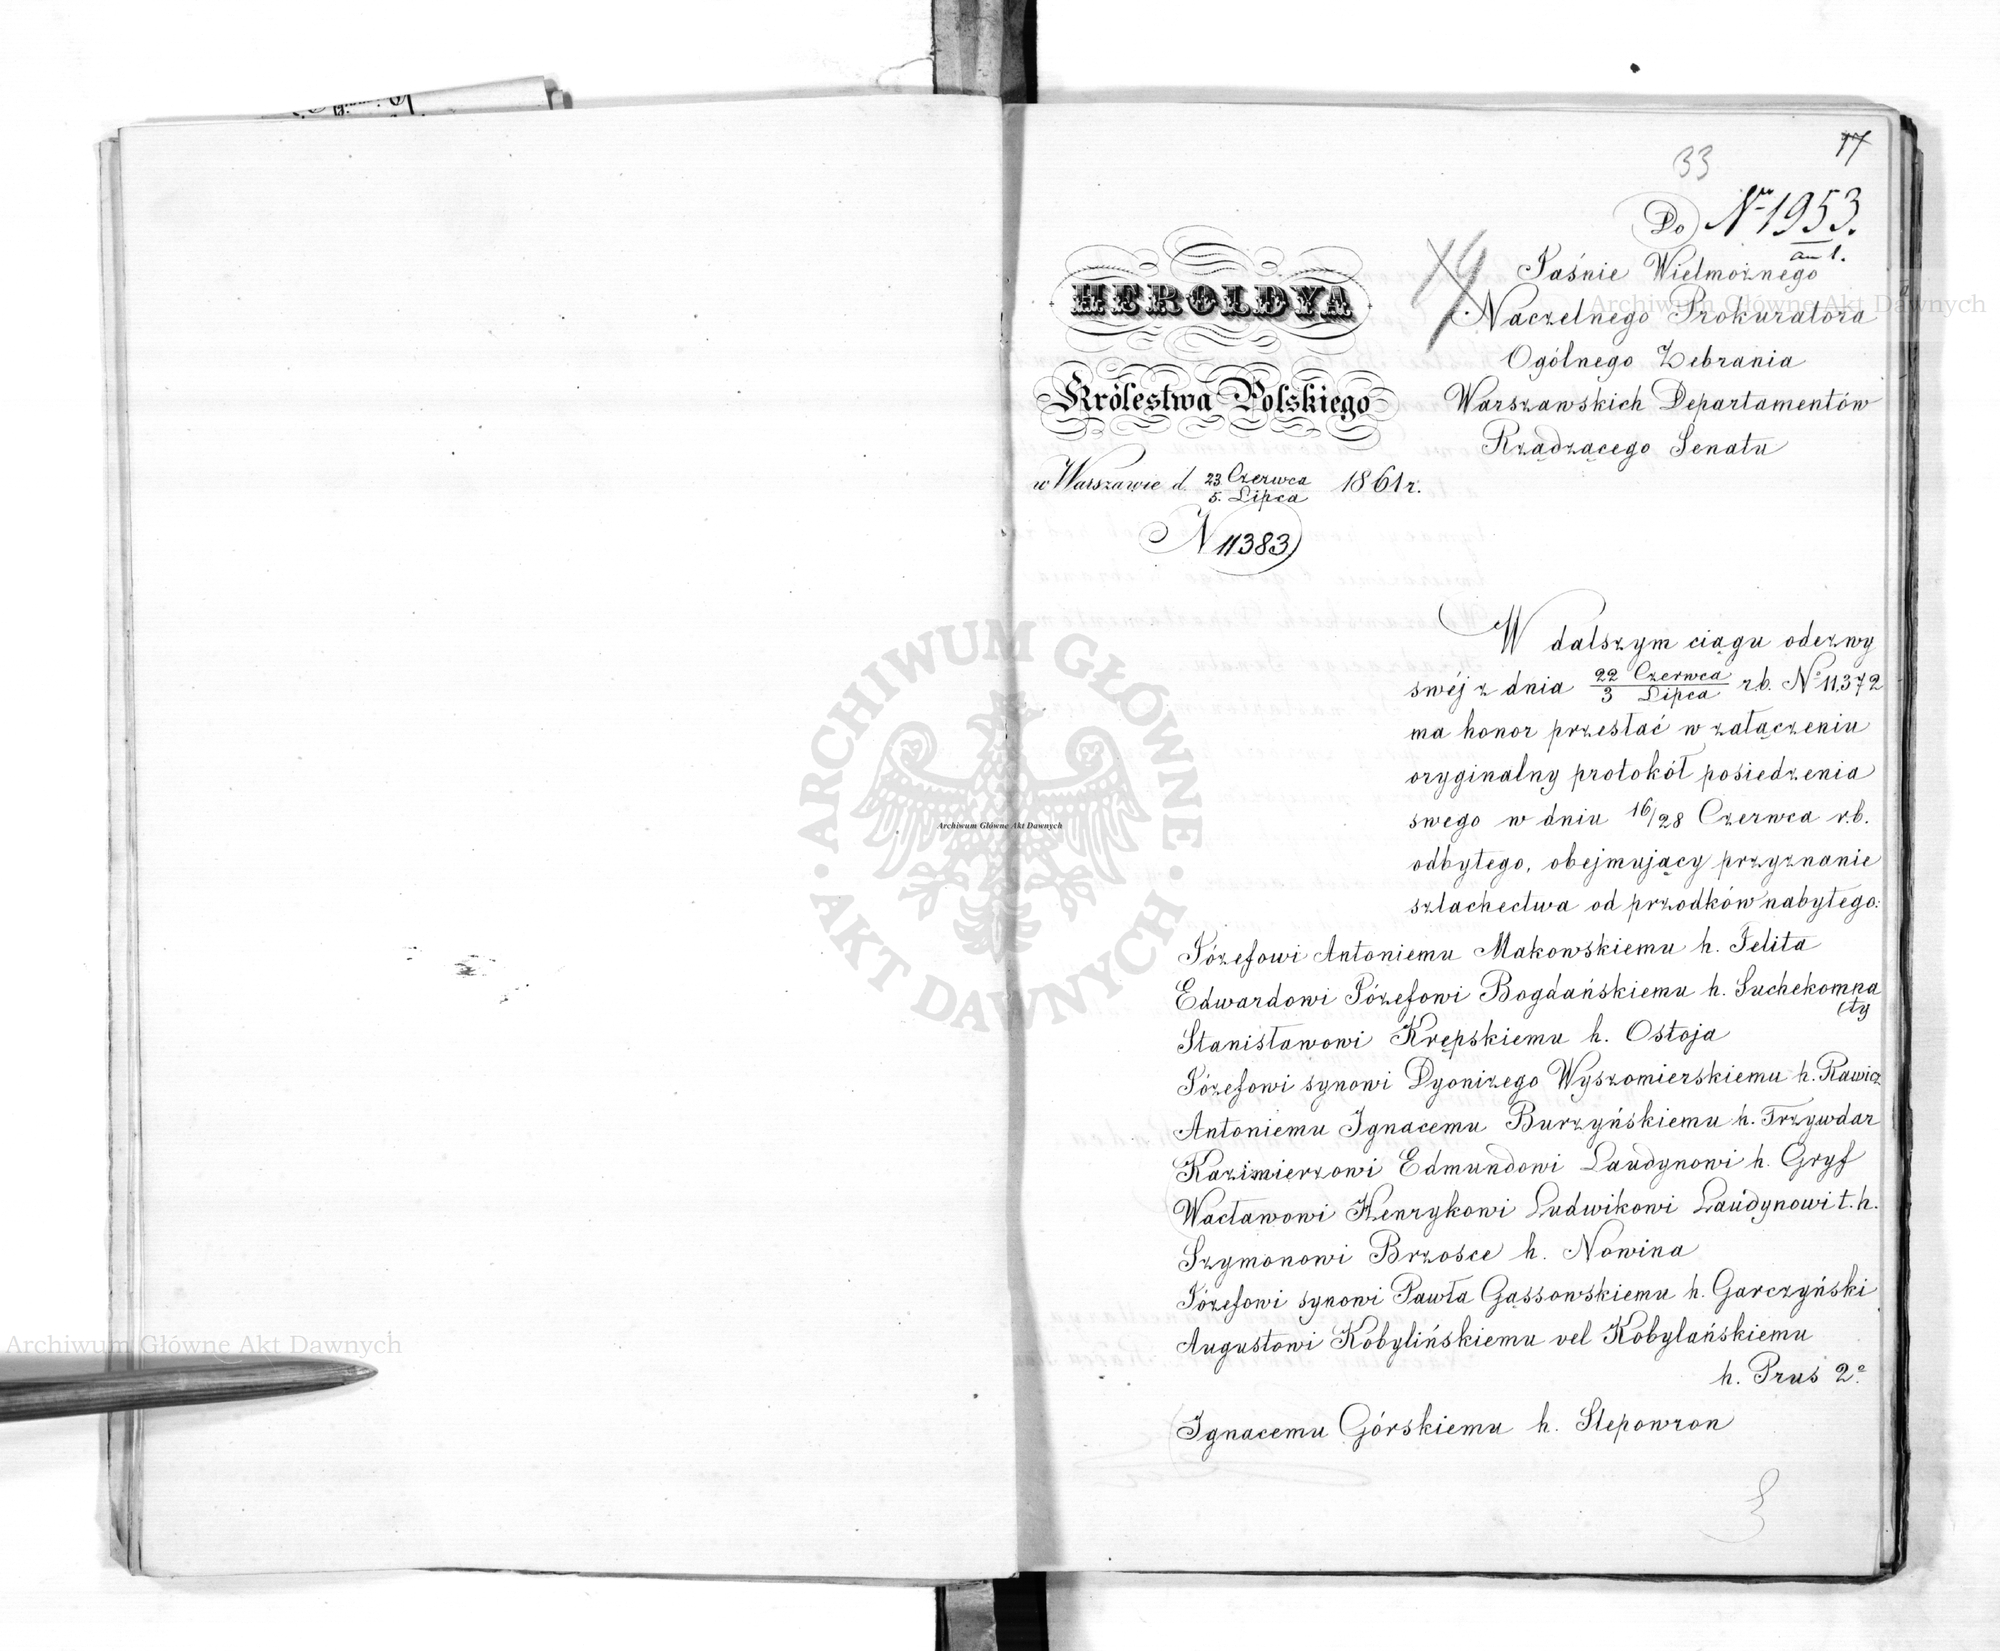 17
33
Do
Nr 1953.
an 1.
Jaśnie Wielmożnego
Naczelnego Prokuratora
Ogólnego Zebrania
Warszawskich Departamentów
Rządzącego Senatu
HEROLDYA
Królestwa Polskiego
w Warszawie d. 23 Czerwca / 5. Lipca 1861 r.
N 11383
W dalszym ciągu odezwy
swéj z dnia 22 Czerwca / 3 Lipca r.b. No 11,372
ma honor przesłać w załączeniu
oryginalny protokół posiedzenia
swego w dniu 16/28 Czerwca r.b.
odbytego, obejmujący przyznanie
szlachectwa od przodków nabytego:
Józefowi Antoniemu Makowskiemu h. Jelita
Edwardowi Józefowi Bogdańskiemu h. Suchekomna
(ty
Stanisławowi Krępskiemu h. Ostoja
Józefowi synowi Dyonizego Wyszomierskiemu h. Rawicz
Antoniemu Ignacemu Burzyńskiemu h. Trzywdar
Kazimierzowi Edmundowi Laudynowi h. Gryf
Wacławowi Henrykowi Ludwikowi Laudynowi t. h.
Szymonowi Brzosce h. Nowina
Józefowi synowi Pawła Gąssowskiemu h. Garczyński
Augustowi Kobylińskiemu vel Kobylańskiemu
h. Prus 2o
Ignacemu Górskiemu h. Slepowron
Archiwum Główne Akt Dawnych
Archiwum Główne Akt Dawnych
Archiwum Główne Akt Dawnych
ARCHIWUM GŁÓWNE AKT DAWNYCH